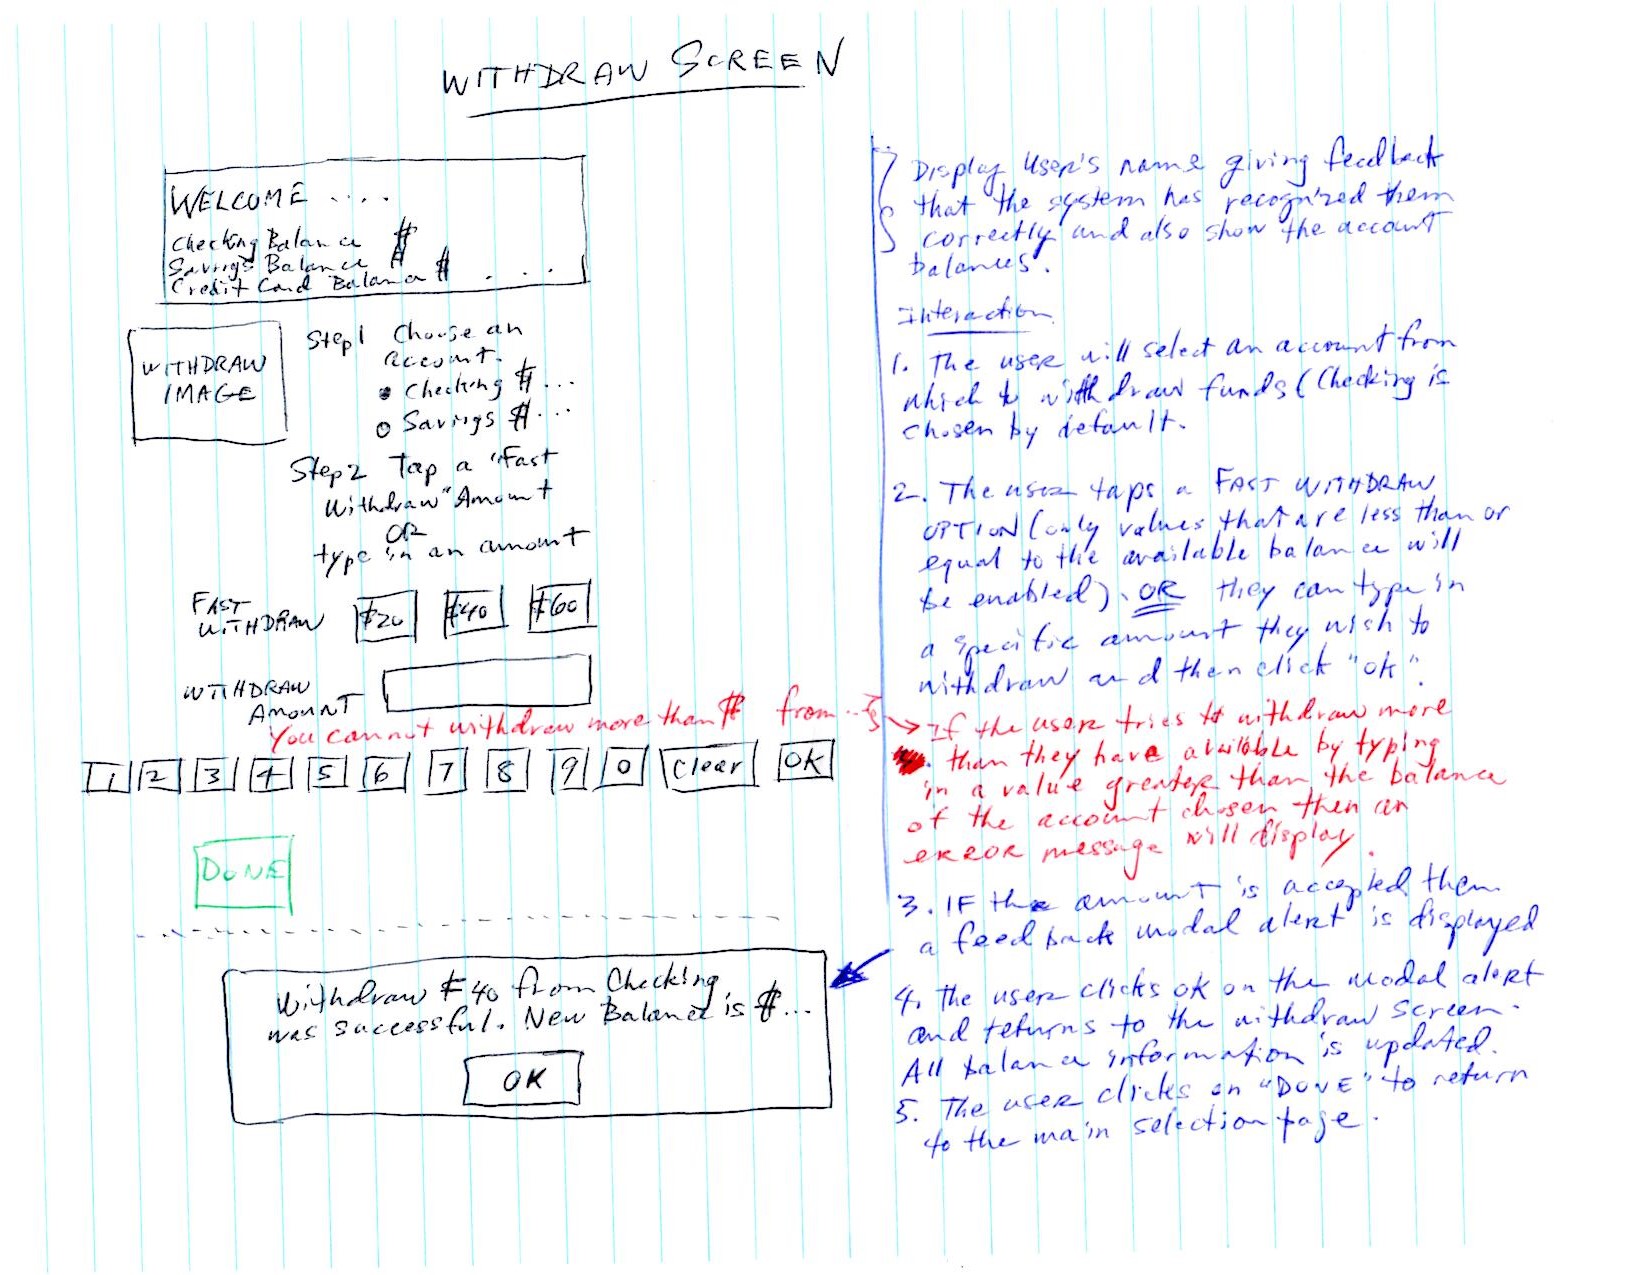 WITHDRAW SCREEN
WELCOME ....
Checking Balance $
Savings Balance $
Credit Card Balance $ . ...
WITHDRAW
IMAGE
Step1 Choose an
account.
Checking $...
Savings $...
Step2 Tap a "Fast
Withdraw" Amount
OR
type in an amount
FAST
WITHDRAW $20 $40 $60
WITHDRAW
AMOUNT
You cannot withdraw more than $ from...
1 2 3 4 5 6 7 8 9 0 Clear OK
DONE
Withdraw $40 from Checking
was successful. New Balance is $...
OK
Display User's name giving feedback
that the system has recognized them
correctly and also show the account
balances.
Interaction
1. The user will select an account from
which to withdraw funds (Checking is
chosen by default.
2. The user taps a FAST WITHDRAW
OPTION (only values that are less than or
equal to the available balance will
be enabled). OR they can type in
a specific amount they wish to
withdraw and then click "ok".
If the user tries to withdraw more
than they have available by typing
in a value greater than the balance
of the account chosen then an
error message will display.
3. IF the amount is accepted then
a feedback modal alert is displayed
4. The user clicks ok on the modal alert
and returns to the withdraw screen.
All balance information is updated.
5. The user clicks on "DONE" to return
to the main selection page.